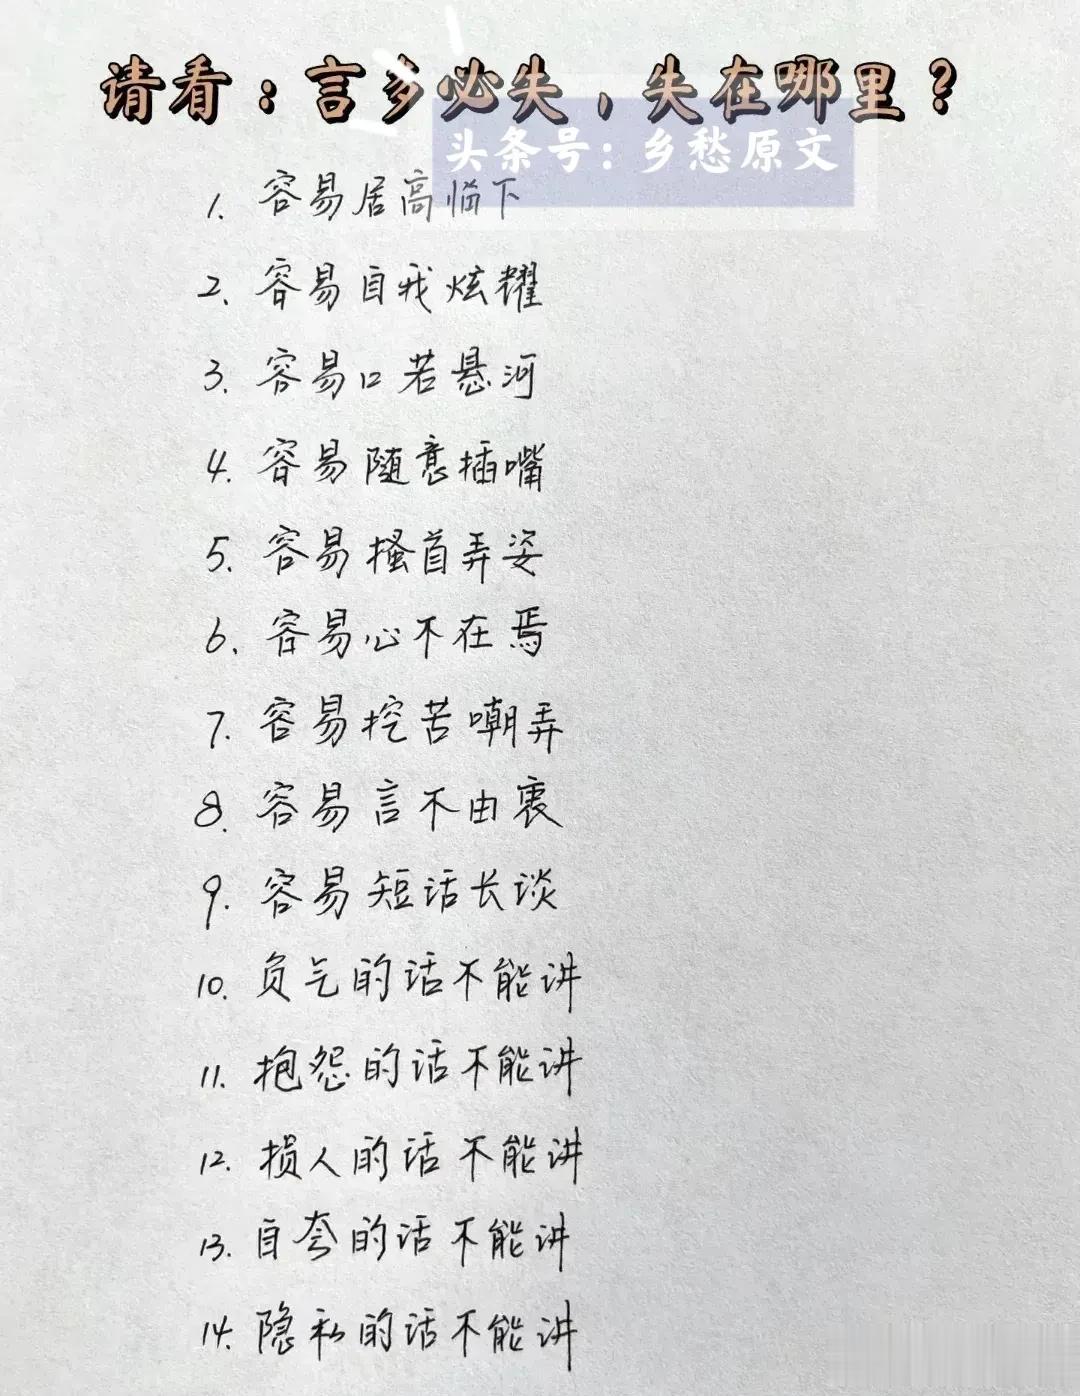 请看：言多必失，失在哪里？
头条号：乡愁原文
1. 容易居高临下
2. 容易自我炫耀
3. 容易口若悬河
4. 容易随意插嘴
5. 容易搔首弄姿
6. 容易心不在焉
7. 容易挖苦嘲弄
8. 容易言不由衷
9. 容易短话长谈
10. 负气的话不能讲
11. 抱怨的话不能讲
12. 损人的话不能讲
13. 自夸的话不能讲
14. 隐私的话不能讲